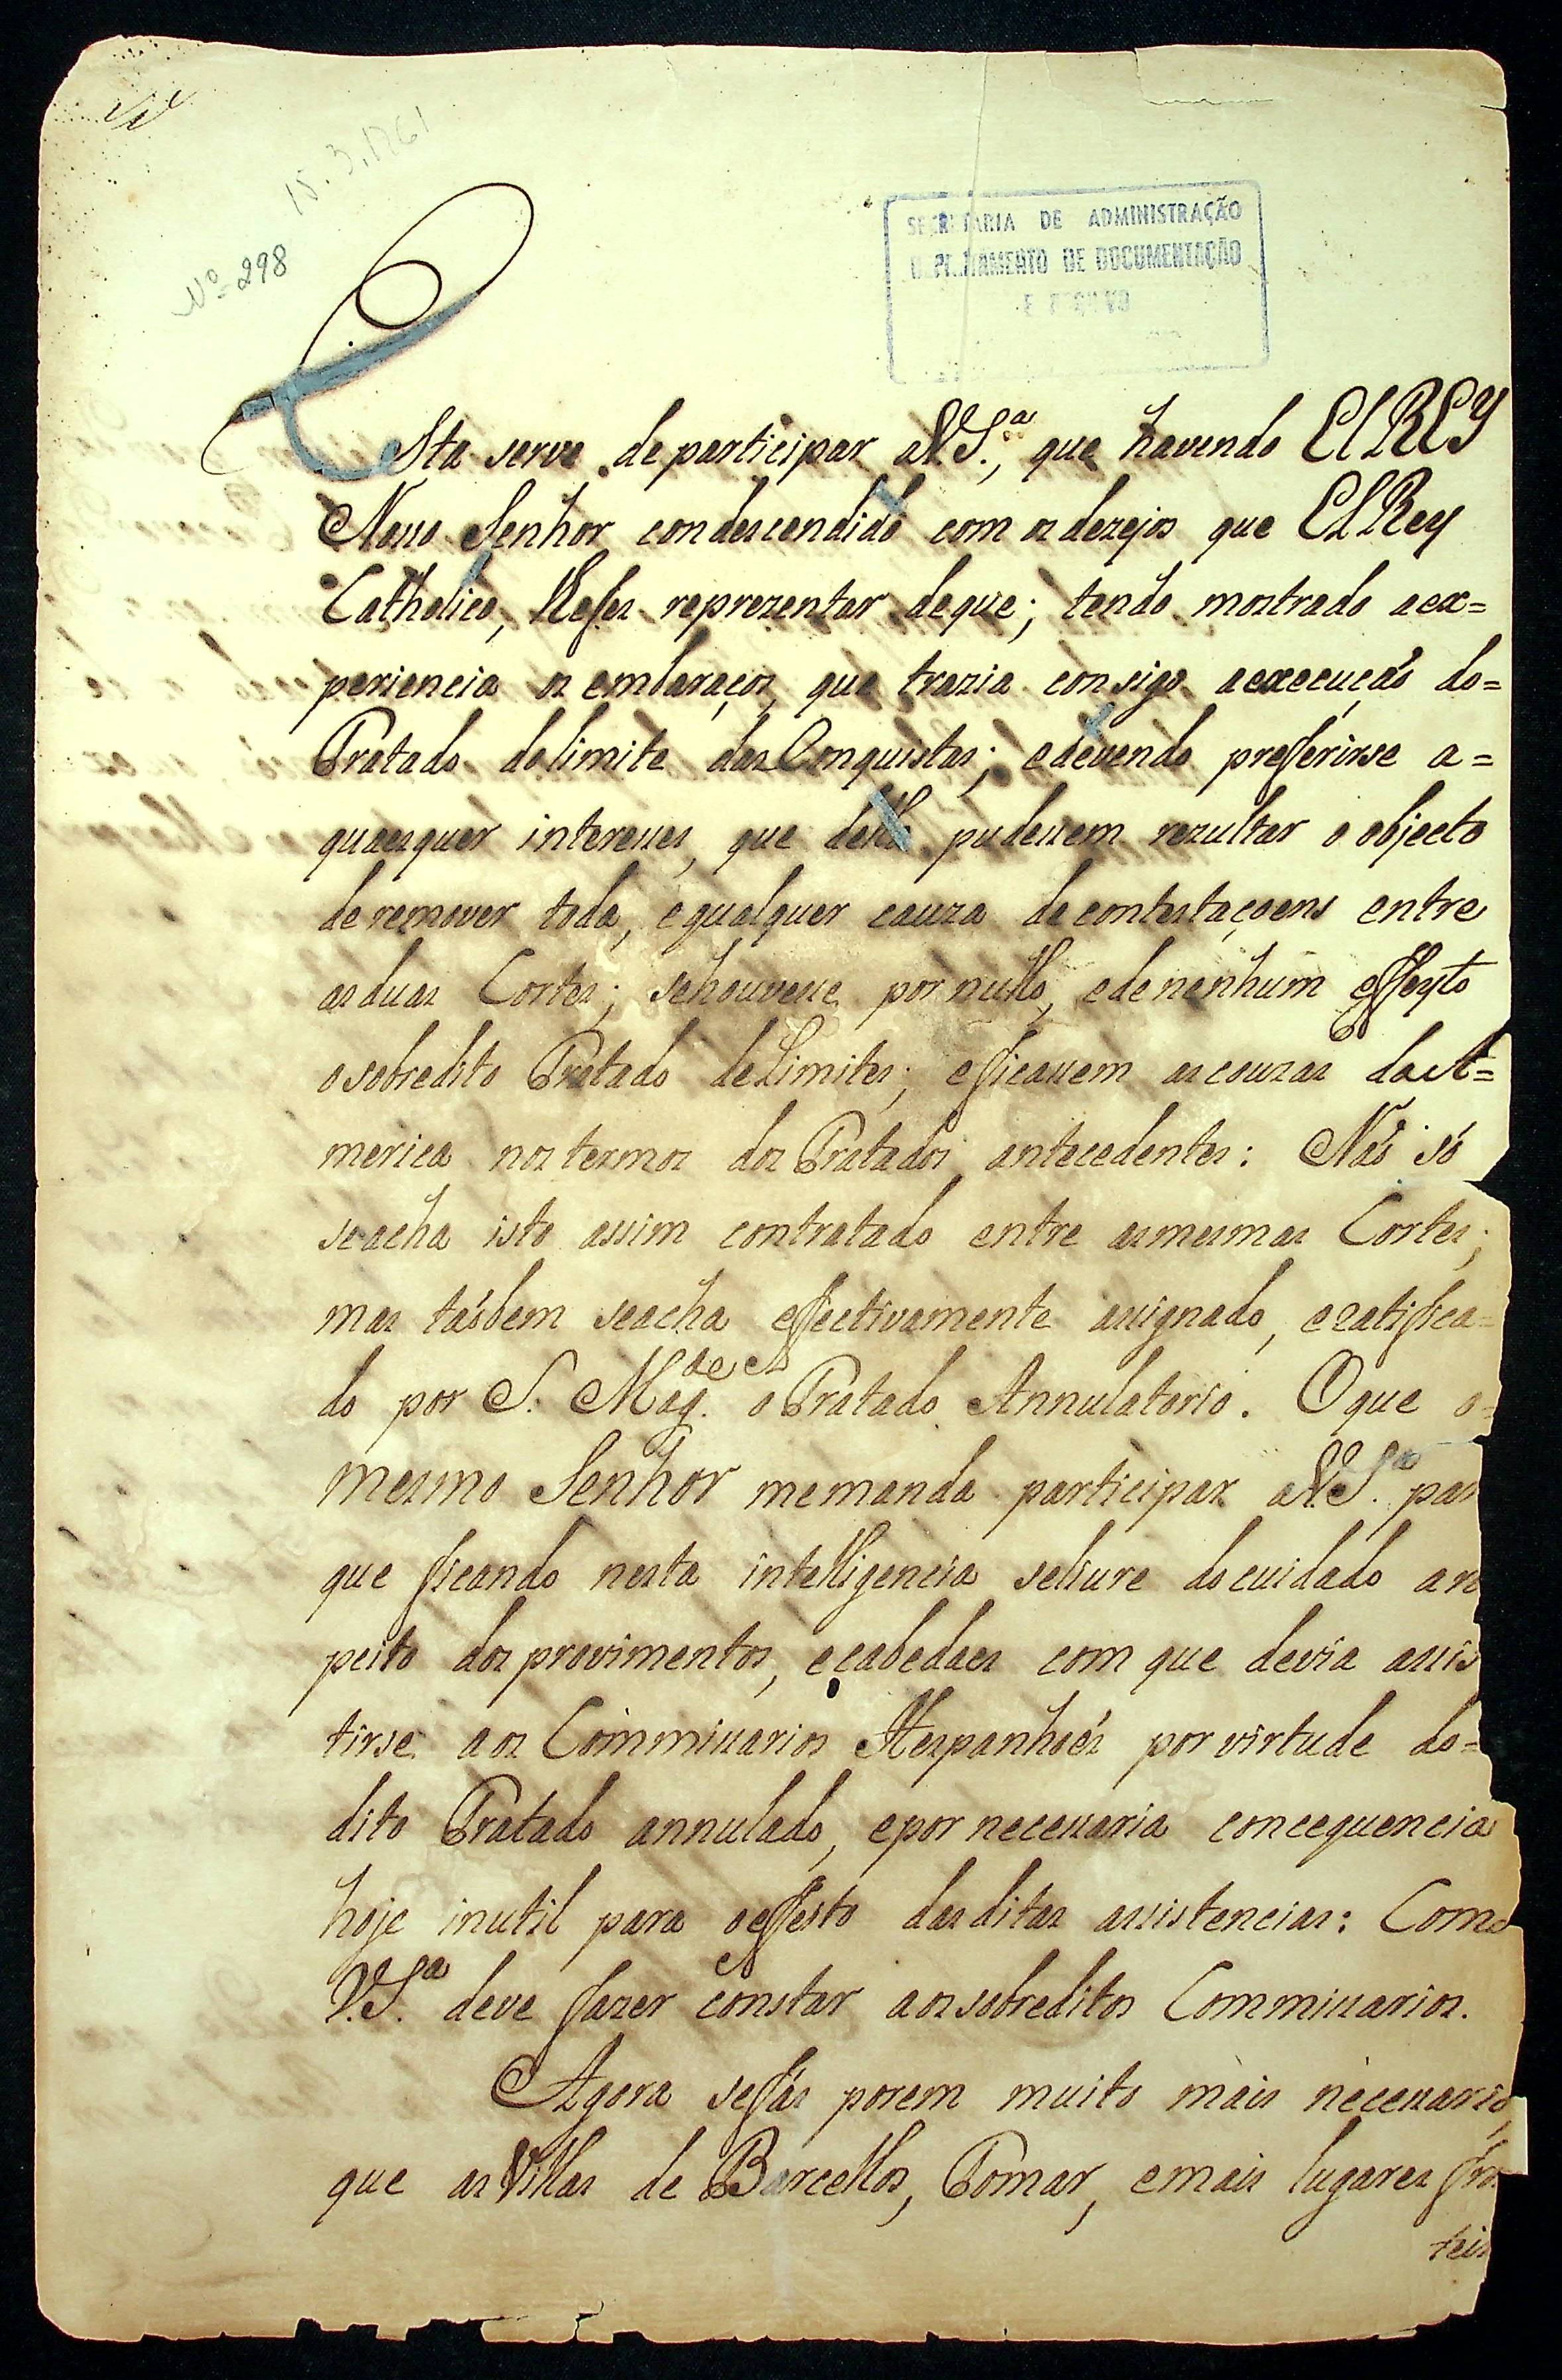 15.3.1761
Nº 298
SECRETARIA DE ADMINISTRAÇÃO
DEPARTAMENTO DE DOCUMENTAÇÃO
E ARQUIVO
Esta serve de participar a V.S.ª, que havendo El REY
Nosso Senhor condescendido com os dezejos que El Rey
Catholico, lhe fes reprezentar de que; tendo mostrado a ex=
periencia os embaraços, que trazia consigo a execuçaõ do=
Tratado de limite das Conquistas; e devendo prefferirse a=
quaesquer interesses, que delle pudessem rezultar o objecto
de remover toda, e qualquer cauza de contestaçoens entre
as duas Cortes; se houvesse por nullo, e de nenhum effeyto
o sobredito Tratado de Limites; e ficassem as couzas da A=
merica nos termos dos Tratados antecedentes: Naõ só
se acha isto assim contratado entre as mesmas Cortes;
mas taõbem se acha effectivamente assignado, e ratifica=
do por S. Mag.de o Tratado Annulatorio. O que o=
mesmo Senhor me manda participar a V.S.ª par
que ficando nesta intelligencia se livre do cuidado a res
peito dos provimentos, e cabedaes com que devia assis
tirse aos Commissarios Hespanhoés por virtude do=
dito Tratado annulado, e por necessaria concequencia
hoje inutil para o effeito das ditas assistencias: Como
V.S.ª deve fazer constar aos sobreditos Commissarios.
Agora se fás porem muito mais necessario,
que as Villas de Barcellos, Tomar, e mais lugares fron
teir